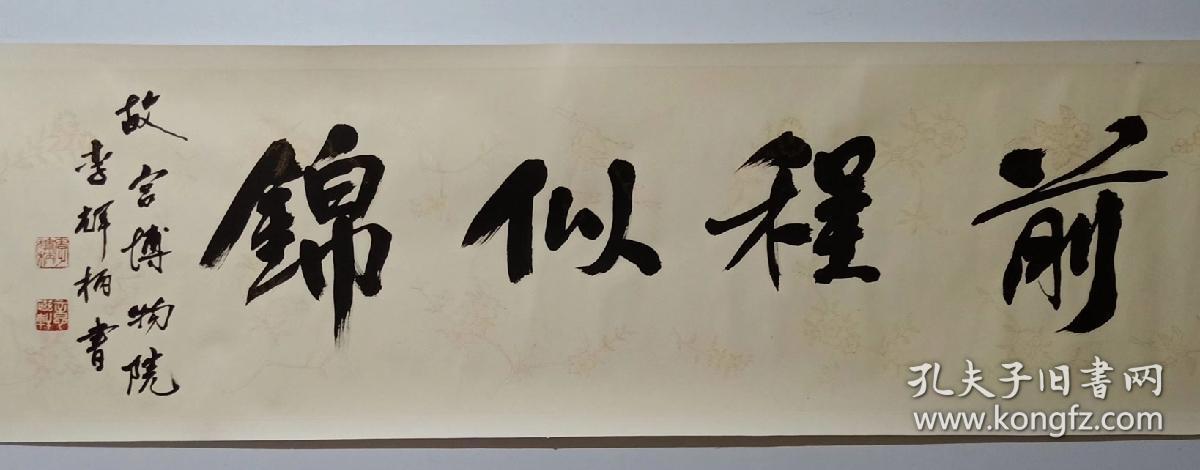 前程似錦
故宫博物院
李輝柄書
孔夫子旧書网
www.kongfz.com